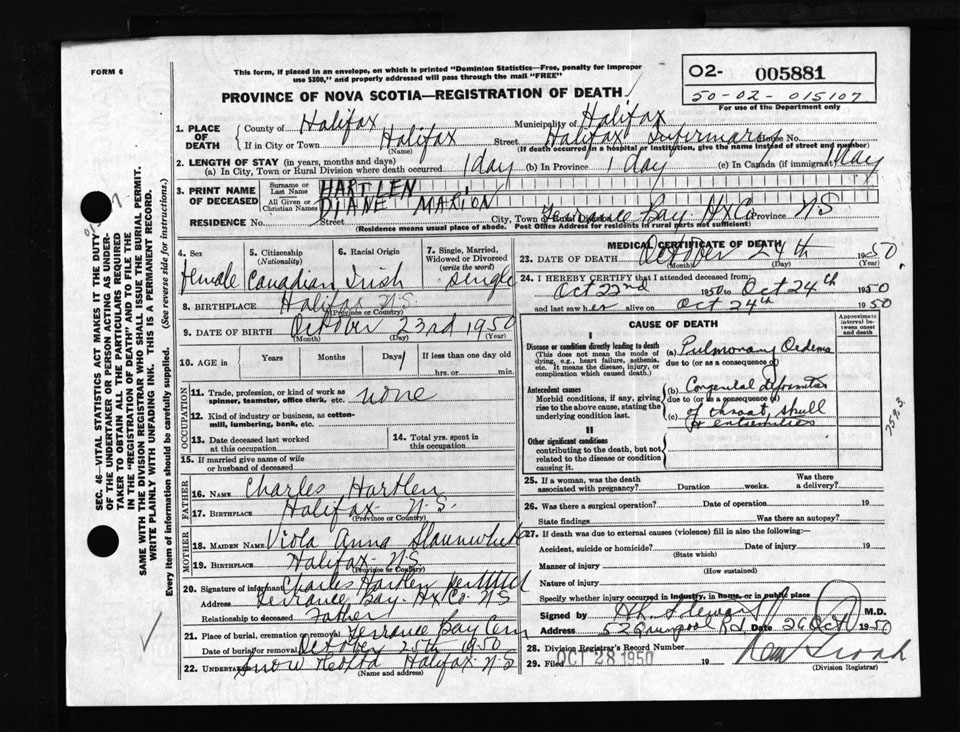 FORM 6
This form, if placed in an envelope, on which is printed "Dominion Statistics—Free, penalty for improper
use $300," and properly addressed will pass through the mail "FREE"
PROVINCE OF NOVA SCOTIA—REGISTRATION OF DEATH
O2- 005881
50-02-015107
For use of the Department only
1. PLACE OF DEATH
County of Halifax Municipality of Halifax
If in City or Town Halifax Street Halifax Infirmary House No.
(Name) (If death occurred in a hospital or institution, give the name instead of street and number)
2. LENGTH OF STAY (in years, months and days)
(a) In City, Town or Rural Division where death occurred 1 day (b) In Province 1 day (c) In Canada (if immigrant) 1 day
3. PRINT NAME OF DECEASED
Surname or Last Name HARTLEN
All Given or Christian Names DIANE MARION
RESIDENCE No. Street City, Town or Rural Division Terrance Bay Hx Co Province N S
(Residence means usual place of abode. Post Office Address for residents in rural parts not sufficient)
4. Sex female
5. Citizenship (Nationality) Canadian
6. Racial Origin Irish
7. Single, Married, Widowed or Divorced (write the word) single
8. BIRTHPLACE Halifax N.S.
(Province or Country)
9. DATE OF BIRTH October 23rd 1950
(Month) (Day) (Year)
10. AGE in Years Months Days 1 If less than one day old
hrs. or min.
OCCUPATION
11. Trade, profession, or kind of work as
spinner, teamster, office clerk, etc. none
12. Kind of industry or business, as cotton-
mill, lumbering, bank, etc.
13. Date deceased last worked
at this occupation
14. Total yrs. spent in
this occupation
15. If married give name of wife
or husband of deceased
FATHER
16. NAME Charles Hartlen
17. BIRTHPLACE Halifax N.S.
(Province or Country)
MOTHER
18. MAIDEN NAME Viola Anna Slaunwhite
19. BIRTHPLACE Halifax N.S.
(Province or Country)
20. Signature of informant Charles Hartlen
Address Terrance Bay Hx Co N S
Relationship to deceased Father
21. Place of burial, cremation or removal Terrance Bay Cem
Date of burial or removal October 25th 1950
22. Undertaker Snow Halifax N.S
(Name and address)
MEDICAL CERTIFICATE OF DEATH
23. DATE OF DEATH October 24th 1950
(Month) (Day) (Year)
24. I HEREBY CERTIFY that I attended deceased from:
Oct 22nd 1950 to Oct 24th 1950
and last saw her alive on Oct 24th 1950
CAUSE OF DEATH
Approximate interval between onset and death
Disease or condition directly leading to death
(This does not mean the mode of
dying, e.g., heart failure, asthenia,
etc. It means the disease, injury, or
complication which caused death.)
(a) Pulmonary Oedema
due to (or as a consequence of)
Antecedent causes
Morbid conditions, if any, giving
rise to the above cause, stating the
underlying condition last.
(b) Congenital deformities
due to (or as a consequence of)
(c) of throat, skull
& extremities
759.3
II
Other significant conditions
contributing to the death, but not
related to the disease or condition
causing it.
25. If a woman, was the death
associated with pregnancy? Duration weeks. Was there a delivery?
26. Was there a surgical operation? Date of operation 19
State findings Was there an autopsy?
27. If death was due to external causes (violence) fill in also the following:
Accident, suicide or homicide? Date of injury 19
(State which)
Manner of injury
(How sustained)
Nature of injury
Specify whether injury occurred in industry, in home, or in public place
Signed by Stewart M.D.
Address 52 Quinpool Rd. Date 26 Oct 1950
28. Division Registrar's Record Number
29. Filed OCT 28 1950 19
(Division Registrar)
SEC. 46—VITAL STATISTICS ACT MAKES IT THE DUTY
OF THE UNDERTAKER OR PERSON ACTING AS UNDER-
TAKER TO OBTAIN ALL THE PARTICULARS REQUIRED
IN THE "REGISTRATION OF DEATH" AND TO FILE THE
SAME WITH THE DIVISION REGISTRAR WHO SHALL ISSUE THE BURIAL PERMIT.
WRITE PLAINLY WITH UNFADING INK. THIS IS A PERMANENT RECORD.
Every item of information should be carefully supplied. (See reverse side for instructions.)